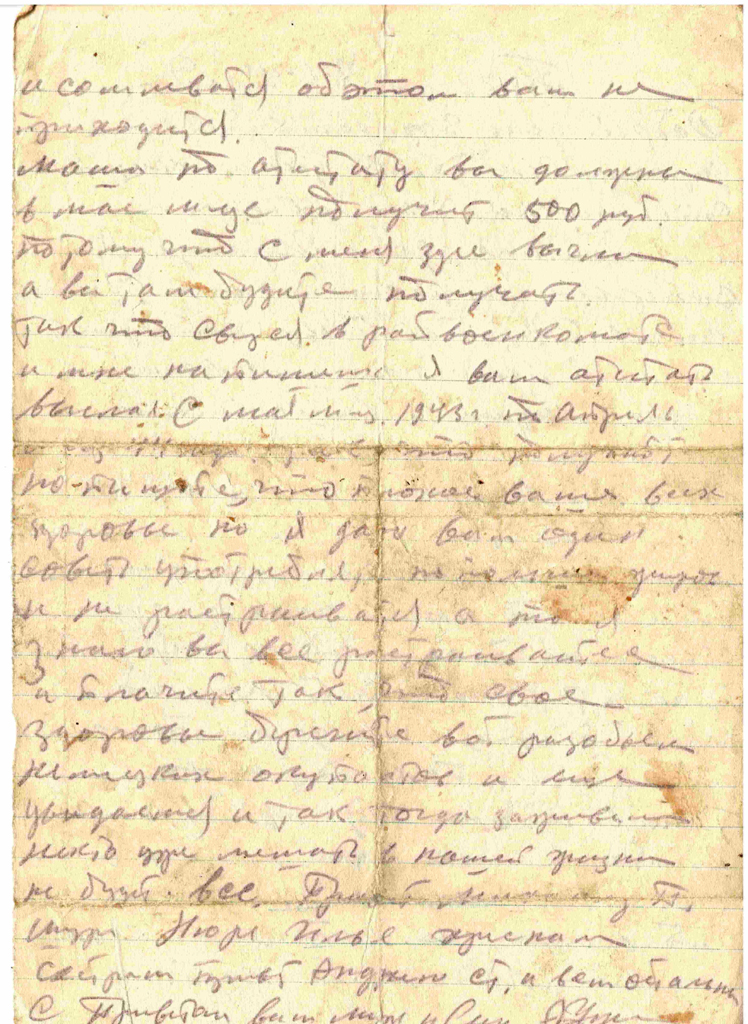 и сомневатся об этом вам не
приходится.
Маша по атестату вы должны
в мае м-це получит 500 руб.
потому что с меня зде вычли
а вы там будите получать.
так что свяжися в райвоенкомате
и мне напишите я вам атестать
выслал. С мая м-ц. 1943 г. по Апрель
что получайт
но пишите, что плохое ваше всех
здоровье но я даю вам один
советь употреблят
и не растраиватся а то я
знаю вы все растраиваетее
и плачите так что свое
здоровье берегите вот разобьем
немецких окупантов и еще
увидаемся и так тогда заживем
некто уже мешать в нашей жизни
не будит. все. Привет
шуре Нюре Илье
сестрам привет Андрею ст. и всем остальным
С Приветом ваш муж и Сын